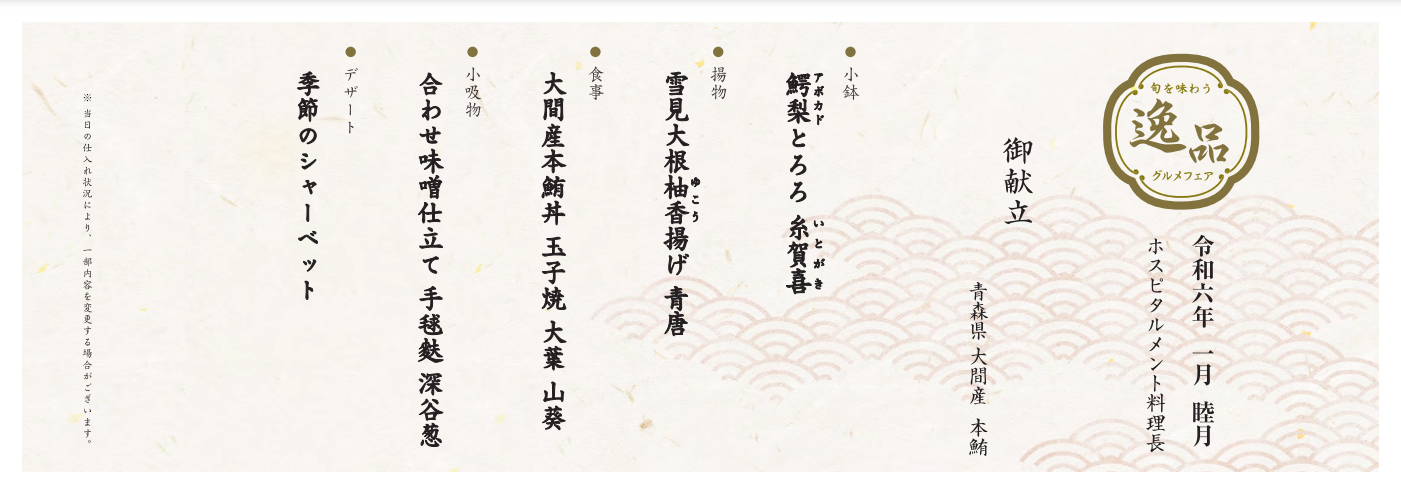 旬を味わう
逸品
グルメフェア
令和六年 一月 睦月
ホスピタルメント料理長
御献立
青森県 大間産 本鮪
● 小鉢
アボカド
いとがき
鰐梨とろろ 糸賀喜
● 揚物
ゆこう
雪見大根柚香揚げ 青唐
● 食事
大間産本鮪丼 玉子焼 大葉 山葵
● 小吸物
合わせ味噌仕立て 手毬麩 深谷葱
● デザート
季節のシャーベット
※ 当日の仕入れ状況により、一部内容を変更する場合がございます。